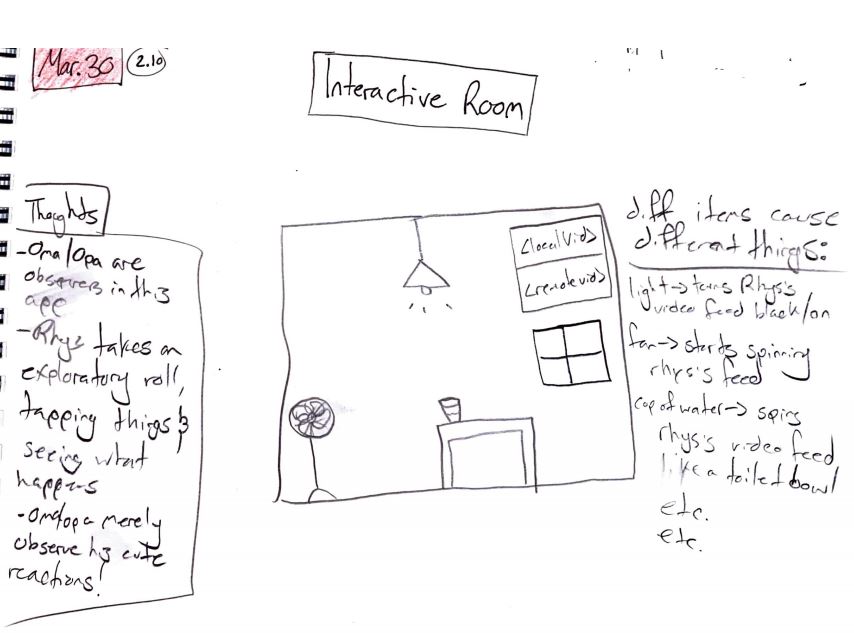 Mar. 30
2.10
Interactive Room
Thoughts
- Oma/Opa are
observers in this
app
- Rhys takes on
exploratory roll,
tapping things &
seeing what
happens
- Oma/opa merely
observe his cute
reactions!
<localvid>
<remotevid>
diff items cause
different things:
light → turns Rhys's
video feed black/on
fan → starts spinning
rhys's feed
cup of water → spins
rhys's video feed
like a toilet bowl
etc.
etc.